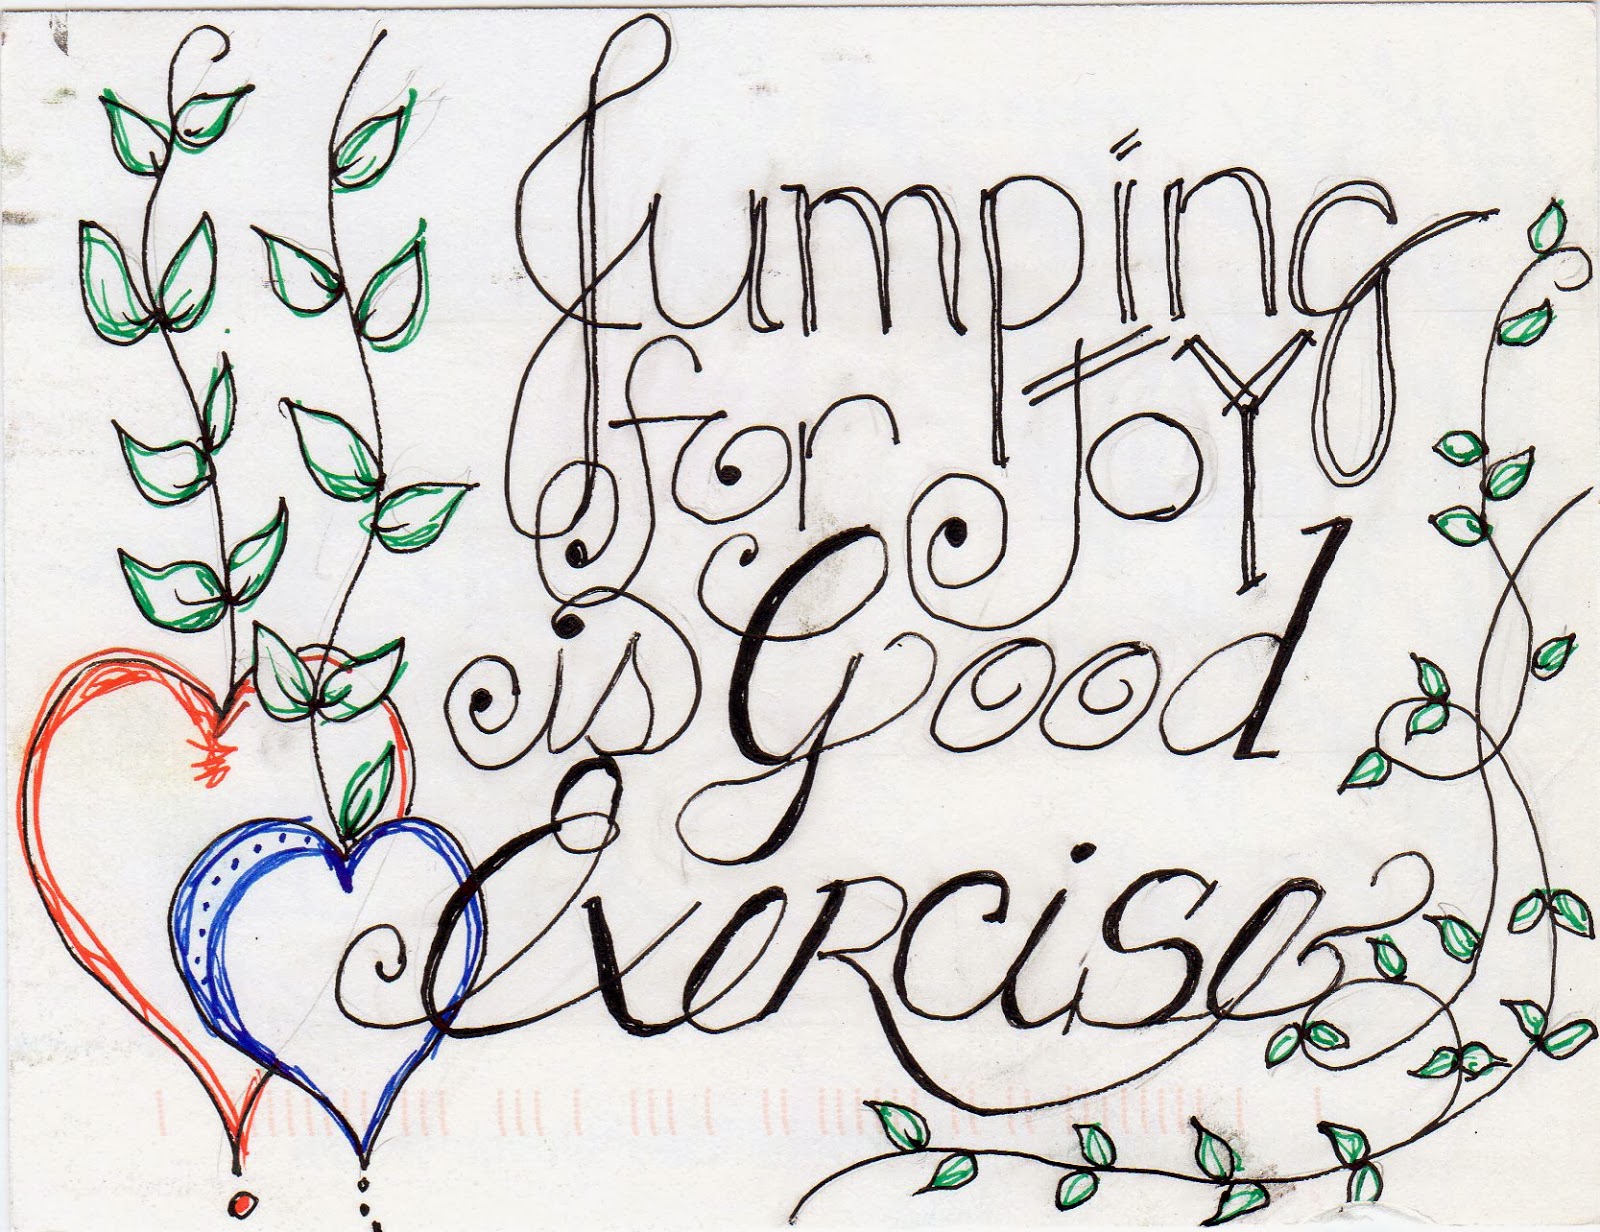 Jumping
for Joy
is Good
Exercise